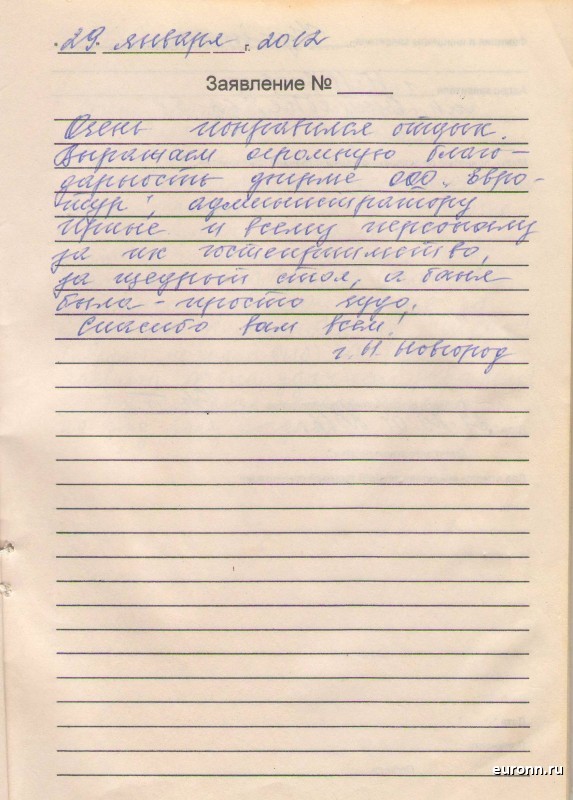 29. января г. 2012
Заявление № ______
Очень понравился отдых.
Выражаем огромную благо-
дарность фирме ООО „Евро-
тур", администратору
Ирине и всему персоналу
за их гостеприимство,
за щедрый стол, а баня
была - просто чудо.
Спасибо вам всем!
г. Н. Новгород
euronn.ru